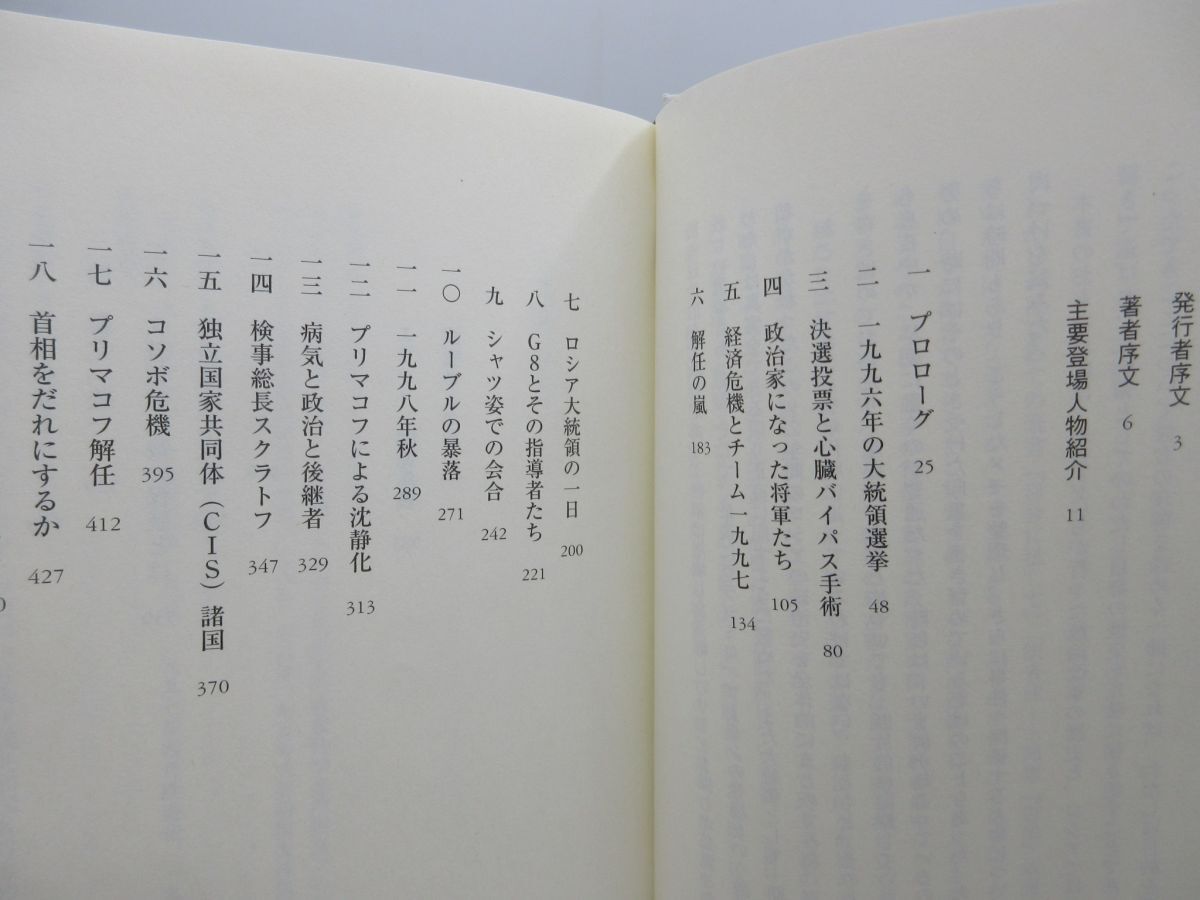 発行者序文 3
著者序文 6
主要登場人物紹介 11
一 プロローグ 25
二 一九九六年の大統領選挙 48
三 決選投票と心臓バイパス手術 80
四 政治家になった将軍たち 105
五 経済危機とチーム一九九七 134
六 解任の嵐 183
七 ロシア大統領の一日 200
八 G8とその指導者たち 221
九 シャツ姿での会合 242
一〇 ルーブルの暴落 271
一一 一九九八年秋 289
一二 プリマコフによる沈静化 313
一三 病気と政治と後継者 329
一四 検事総長スクラトフ 347
一五 独立国家共同体（CIS）諸国 370
一六 コソボ危機 395
一七 プリマコフ解任 412
一八 首相をだれにするか 427